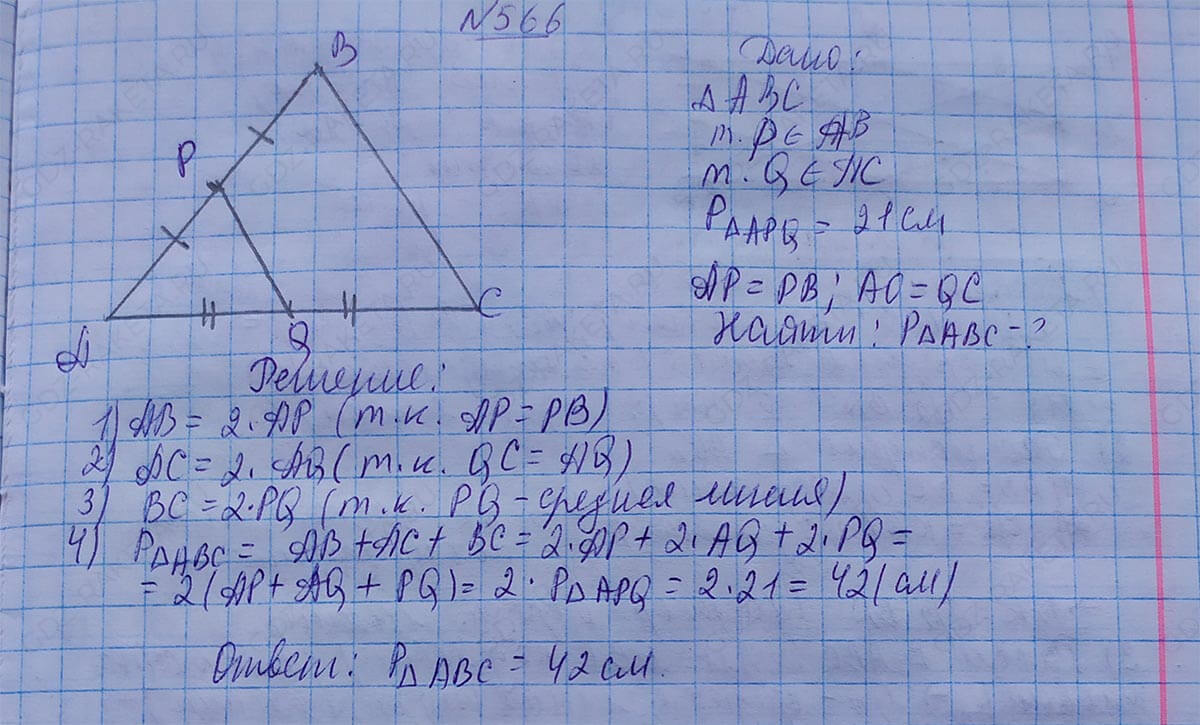 №566
B
P
A
Q
C
Дано:
△ABC
т. P ∈ AB
т. Q ∈ AC
P△APQ = 21 см
AP = PB; AQ = QC
Найти: P△ABC - ?
Решение:
1) AB = 2·AP (т.к. AP = PB)
2) AC = 2·AQ (т.к. QC = AQ)
3) BC = 2·PQ (т.к. PQ - средняя линия)
4) P△ABC = AB + AC + BC = 2·AP + 2·AQ + 2·PQ =
= 2(AP + AQ + PQ) = 2·P△APQ = 2·21 = 42 (см)
Ответ: P△ABC = 42 см.